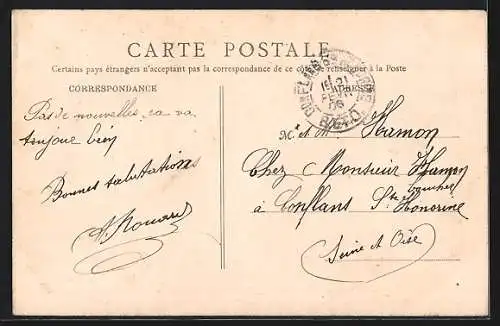 CARTE POSTALE
Certains pays étrangers n'acceptent pas la correspondance de ce côté, se renseigner à la Poste
CORRESPONDANCE
ADRESSE
Pas de nouvelles, ca va
toujours bien
Bonnes salutations
Mr et Hamon
Chez Monsieur Hamon
à Conflans Ste Honorine
Seine et Oise